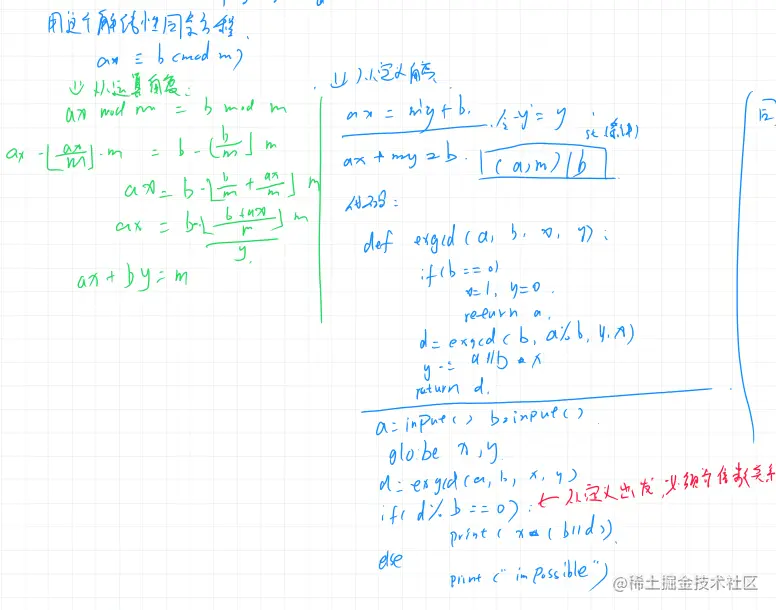 用这个解线性同余方程
ax ≡ b (mod m)
(1) 从运算角度:
ax mod m = b mod m
ax - ⌊ax/m⌋·m = b - ⌊b/m⌋ m
ax = b - ⌊b/m + ax/m⌋ m
ax = b - ⌊b+ax/m⌋ m
y
ax + by = m
(1) 从定义角度
ax = my + b. 令 -y' = y
ax + my = b. (a, m) | b
def exgcd (a, b, x, y):
if (b == 0)
x=1, y=0
return a.
d = exgcd (b, a%b, y, x)
y -= a//b * x
return d.
a = input() b = input()
globe x, y
d = exgcd (a, b, x, y)
if (d % b == 0): ← 从定义出发, 必须为倍数关系
print ( x * (b//d))
else
print ("impossible")
@稀土掘金技术社区